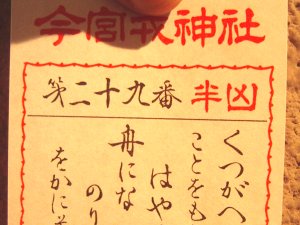 今宮戎神社
第二十九番 半凶
くつがへ
ことをも
はや
舟にな
のり
をかに